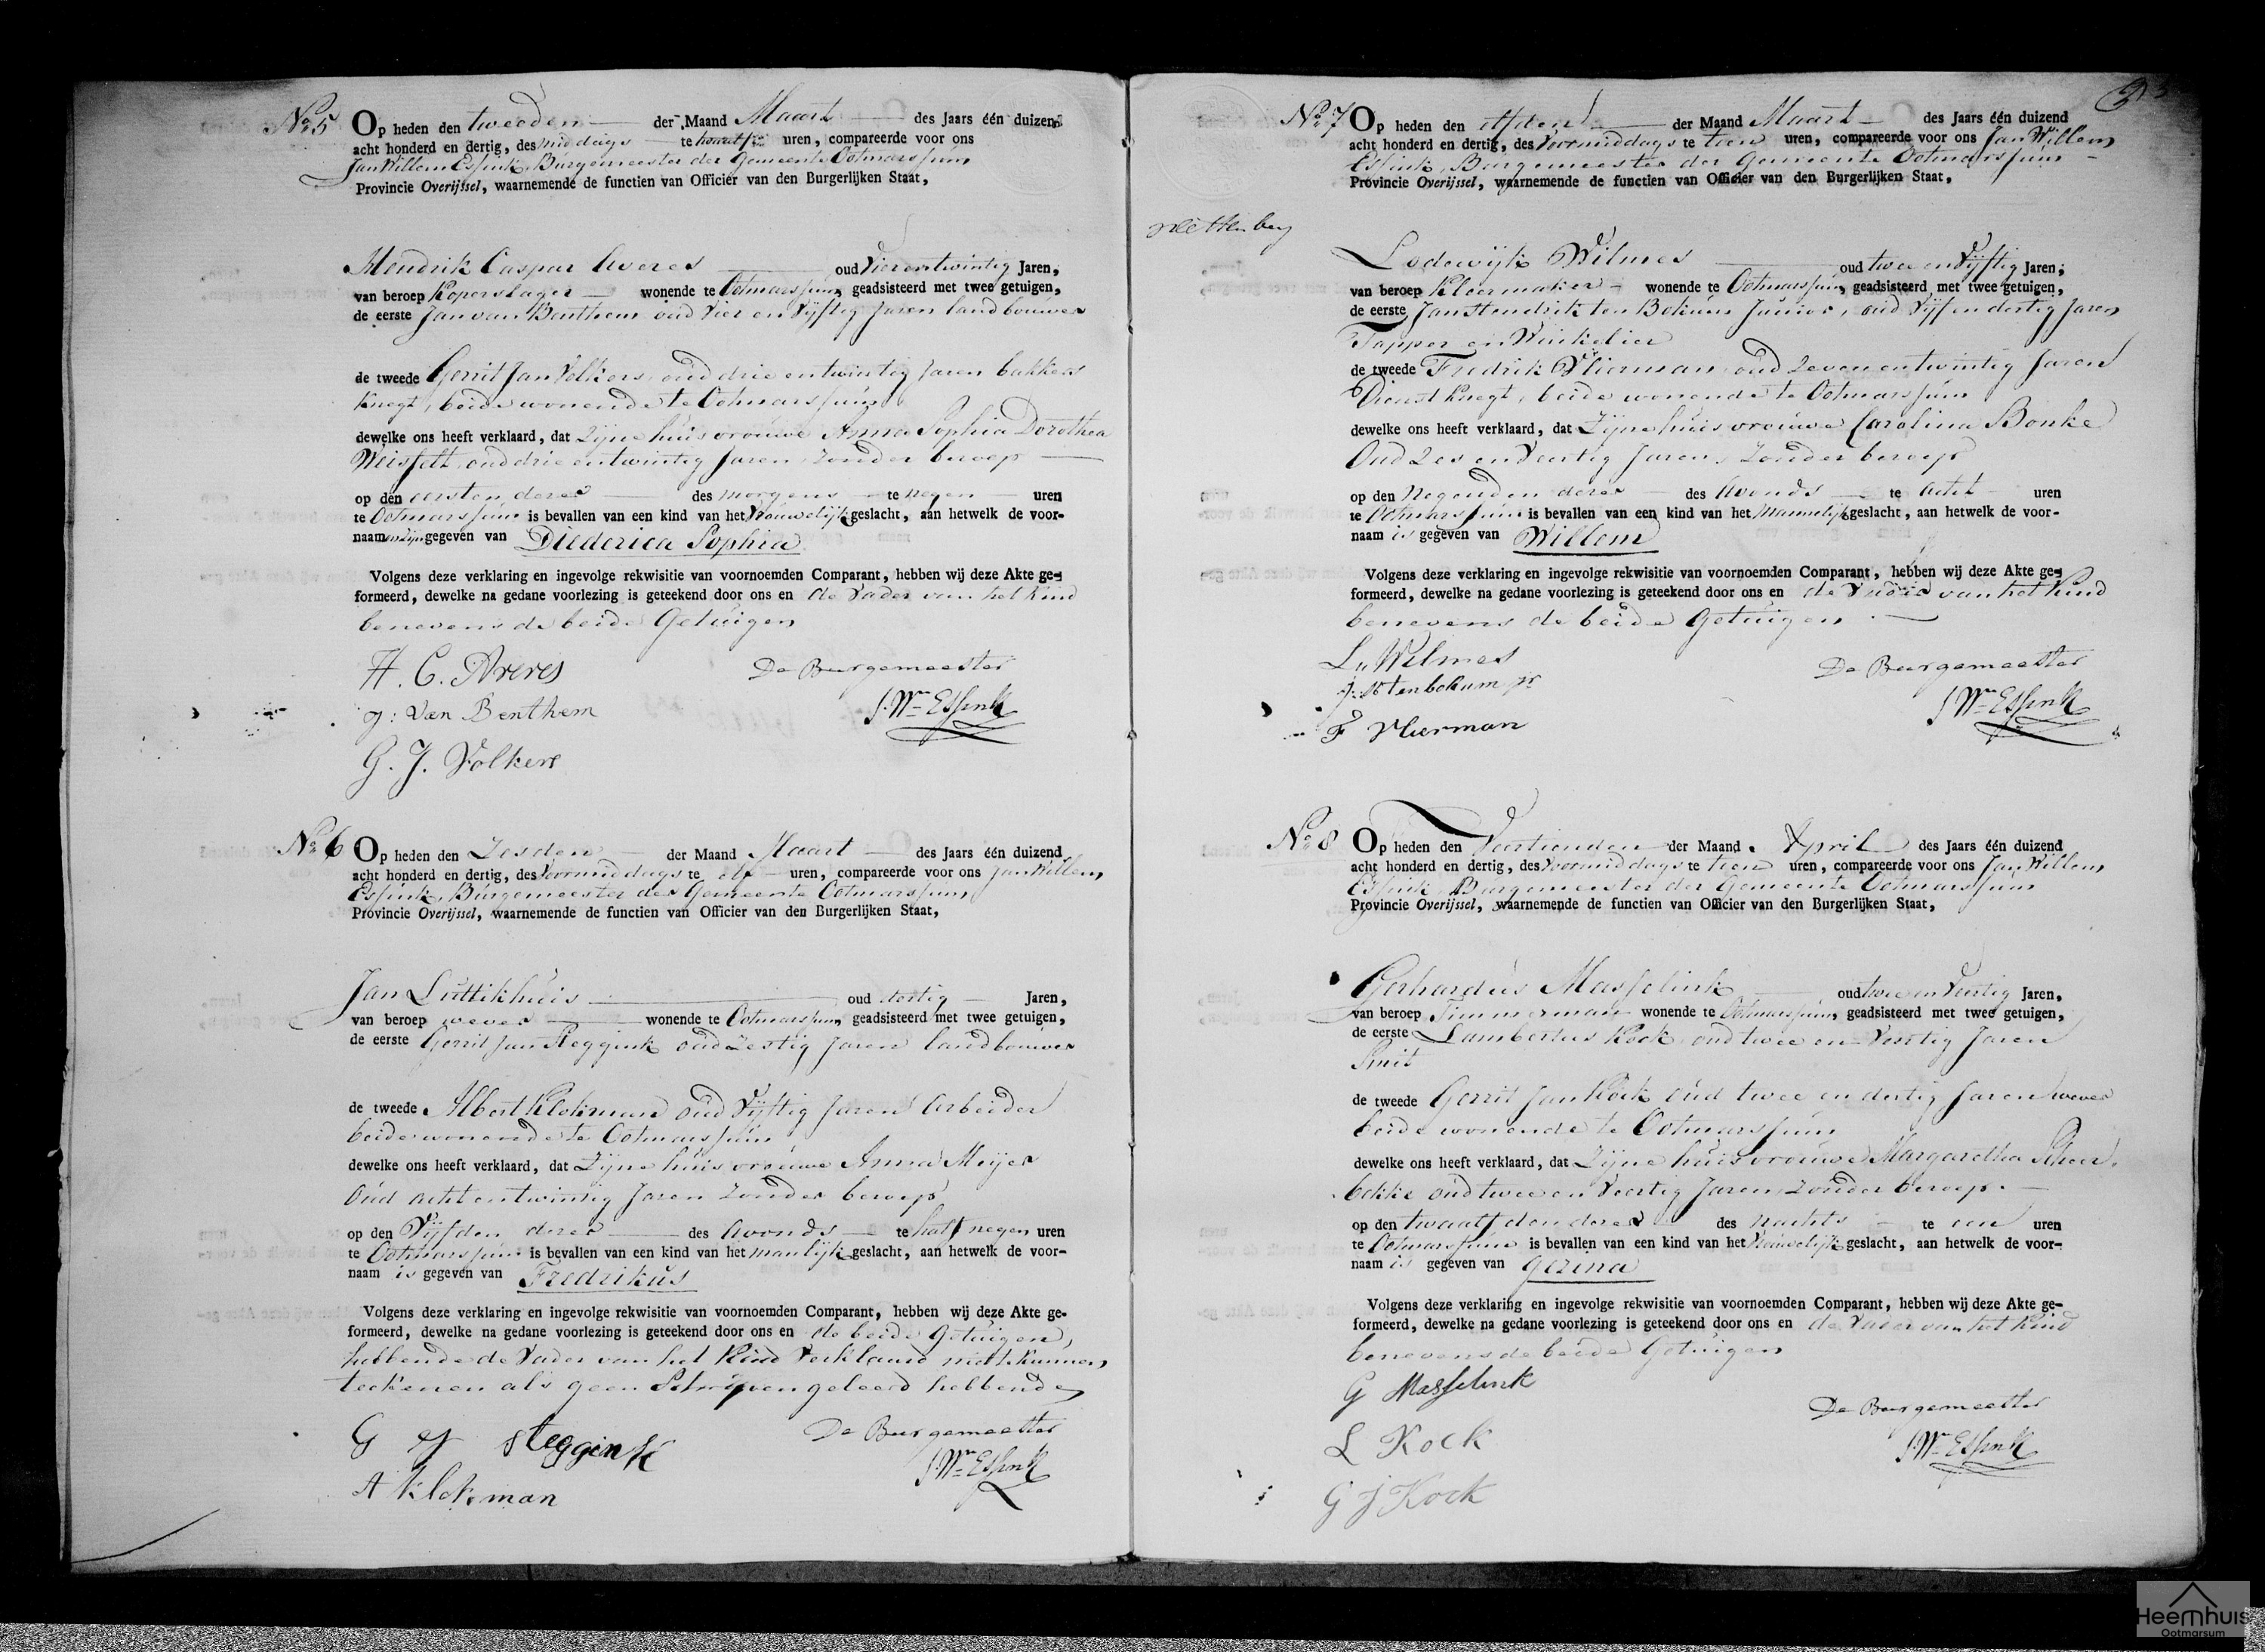 No. 5 Op heden den tweeden der Maand Maart des Jaars één duizend
acht honderd en dertig, des middags te twaalf uren, compareerde voor ons
Jan Willem Essink, Burgemeester der Gemeente Ootmarssum,
Provincie Overijssel, waarnemende de functien van Officier van den Burgerlijken Staat,
Hendrik Caspar Averes oud Vier en twintig Jaren,
van beroep Koperslager wonende te Ootmarssum, geadsisteerd met twee getuigen,
de eerste Jan van Benthem oud Vier en Vijftig Jaren landbouwer
de tweede Gerrit Jan Volkers oud drie en twintig Jaren bakkers
Knegt, beide wonende te Ootmarssum
dewelke ons heeft verklaard, dat Zijne huisvrouwe Anna Sophia Dorothea
Weisfelt oud drie en twintig Jaren Zonder beroep
op den eersten dezer des morgens te negen uren
te Ootmarssum is bevallen van een kind van het Vrouwelijk geslacht, aan hetwelk de voor-
naamen zijn gegeven van Diederica Sophia
Volgens deze verklaring en ingevolge rekwisitie van voornoemden Comparant, hebben wij deze Akte ge-
formeerd, dewelke na gedane voorlezing is geteekend door ons en de Vader van het Kind
benevens de beide Getuigen
H. C. Averes De Burgemeester
J: van Benthem J. Wm Essink
G. J. Volkers
No. 6 Op heden den Zesden der Maand Maart des Jaars één duizend
acht honderd en dertig, des Voormiddags te elf uren, compareerde voor ons Jan Willem
Essink, Burgemeester der Gemeente Ootmarssum,
Provincie Overijssel, waarnemende de functien van Officier van den Burgerlijken Staat,
Jan Luttikhuis oud dertig Jaren,
van beroep wever wonende te Ootmarssum, geadsisteerd met twee getuigen,
de eerste Gerrit Jan Steggink oud Zestig Jaren landbouwer
de tweede Albert Klokman oud Vijftig Jaren Arbeider
beide wonende te Ootmarssum
dewelke ons heeft verklaard, dat Zijne huisvrouwe Anna Meijer
Oud acht en twintig Jaren Zonder beroep
op den Vijfden dezer des Avonds te half negen uren
te Ootmarssum is bevallen van een kind van het manlijk geslacht, aan hetwelk de voor-
naam is gegeven van Fredrikus
Volgens deze verklaring en ingevolge rekwisitie van voornoemden Comparant, hebben wij deze Akte ge-
formeerd, dewelke na gedane voorlezing is geteekend door ons en de beide Getuigen,
hebbende de Vader van het Kind Verklaard niet te kunnen
teekenen als geen Schrijven geleerd hebbende
G J Steggink De Burgemeester
A Klokman J. Wm Essink
No. 7 Op heden den elfden der Maand Maart des Jaars één duizend
acht honderd en dertig, des Voormiddags te tien uren, compareerde voor ons Jan Willem
Essink, Burgemeester der Gemeente Ootmarssum
Provincie Overijssel, waarnemende de functien van Officier van den Burgerlijken Staat,
Lodewijk Wilmes oud twee en Vijftig Jaren,
van beroep Kleermaker wonende te Ootmarssum, geadsisteerd met twee getuigen,
de eerste Jan Hendrik ten Bokum Junior, oud Vijf en dertig Jaren
Tapper en Winkelier
de tweede Fredrik Vlierman oud Zeven en twintig Jaren
Dienst Knegt, beide wonende te Ootmarssum
dewelke ons heeft verklaard, dat Zijne huisvrouwe Carolina Bonke
Oud Zes en Veertig Jaren, Zonder beroep
op den Negenden dezer des Avonds te acht uren
te Ootmarssum is bevallen van een kind van het Mannelijk geslacht, aan hetwelk de voor-
naam is gegeven van Willem
Volgens deze verklaring en ingevolge rekwisitie van voornoemden Comparant, hebben wij deze Akte ge-
formeerd, dewelke na gedane voorlezing is geteekend door ons en de Vader van het Kind
benevens de beide Getuigen
L. Wilmes De Burgemeester
J: H ten bokum jr J Wm Essink
F Vlierman
No. 8 Op heden den Veertienden der Maand April des Jaars één duizend
acht honderd en dertig, des Voormiddags te tien uren, compareerde voor ons Jan Willem
Essink, Burgemeester der Gemeente Ootmarssum
Provincie Overijssel, waarnemende de functien van Officier van den Burgerlijken Staat,
Gerhardus Masselink oud twee en Veertig Jaren,
van beroep Timmerman wonende te Ootmarssum, geadsisteerd met twee getuigen,
de eerste Lambertus Kock oud twee en Veertig Jaren
Smit
de tweede Gerrit Jan Kock oud twee en dertig Jaren wever
beide wonende te Ootmarssum
dewelke ons heeft verklaard, dat Zijne huisvrouwe Margaretha
oud twee en Veertig Jaren, Zonder beroep.
op den twaalfden dezer des nachts te een uren
te Ootmarssum is bevallen van een kind van het Vrouwelijk geslacht, aan hetwelk de voor-
naam is gegeven van Gezina
Volgens deze verklaring en ingevolge rekwisitie van voornoemden Comparant, hebben wij deze Akte ge-
formeerd, dewelke na gedane voorlezing is geteekend door ons en de Vader van het Kind
benevens de beide Getuigen
G Masselink De Burgemeester
L Kock J. Wm Essink
G J Kock
Heemhuis
Ootmarsum